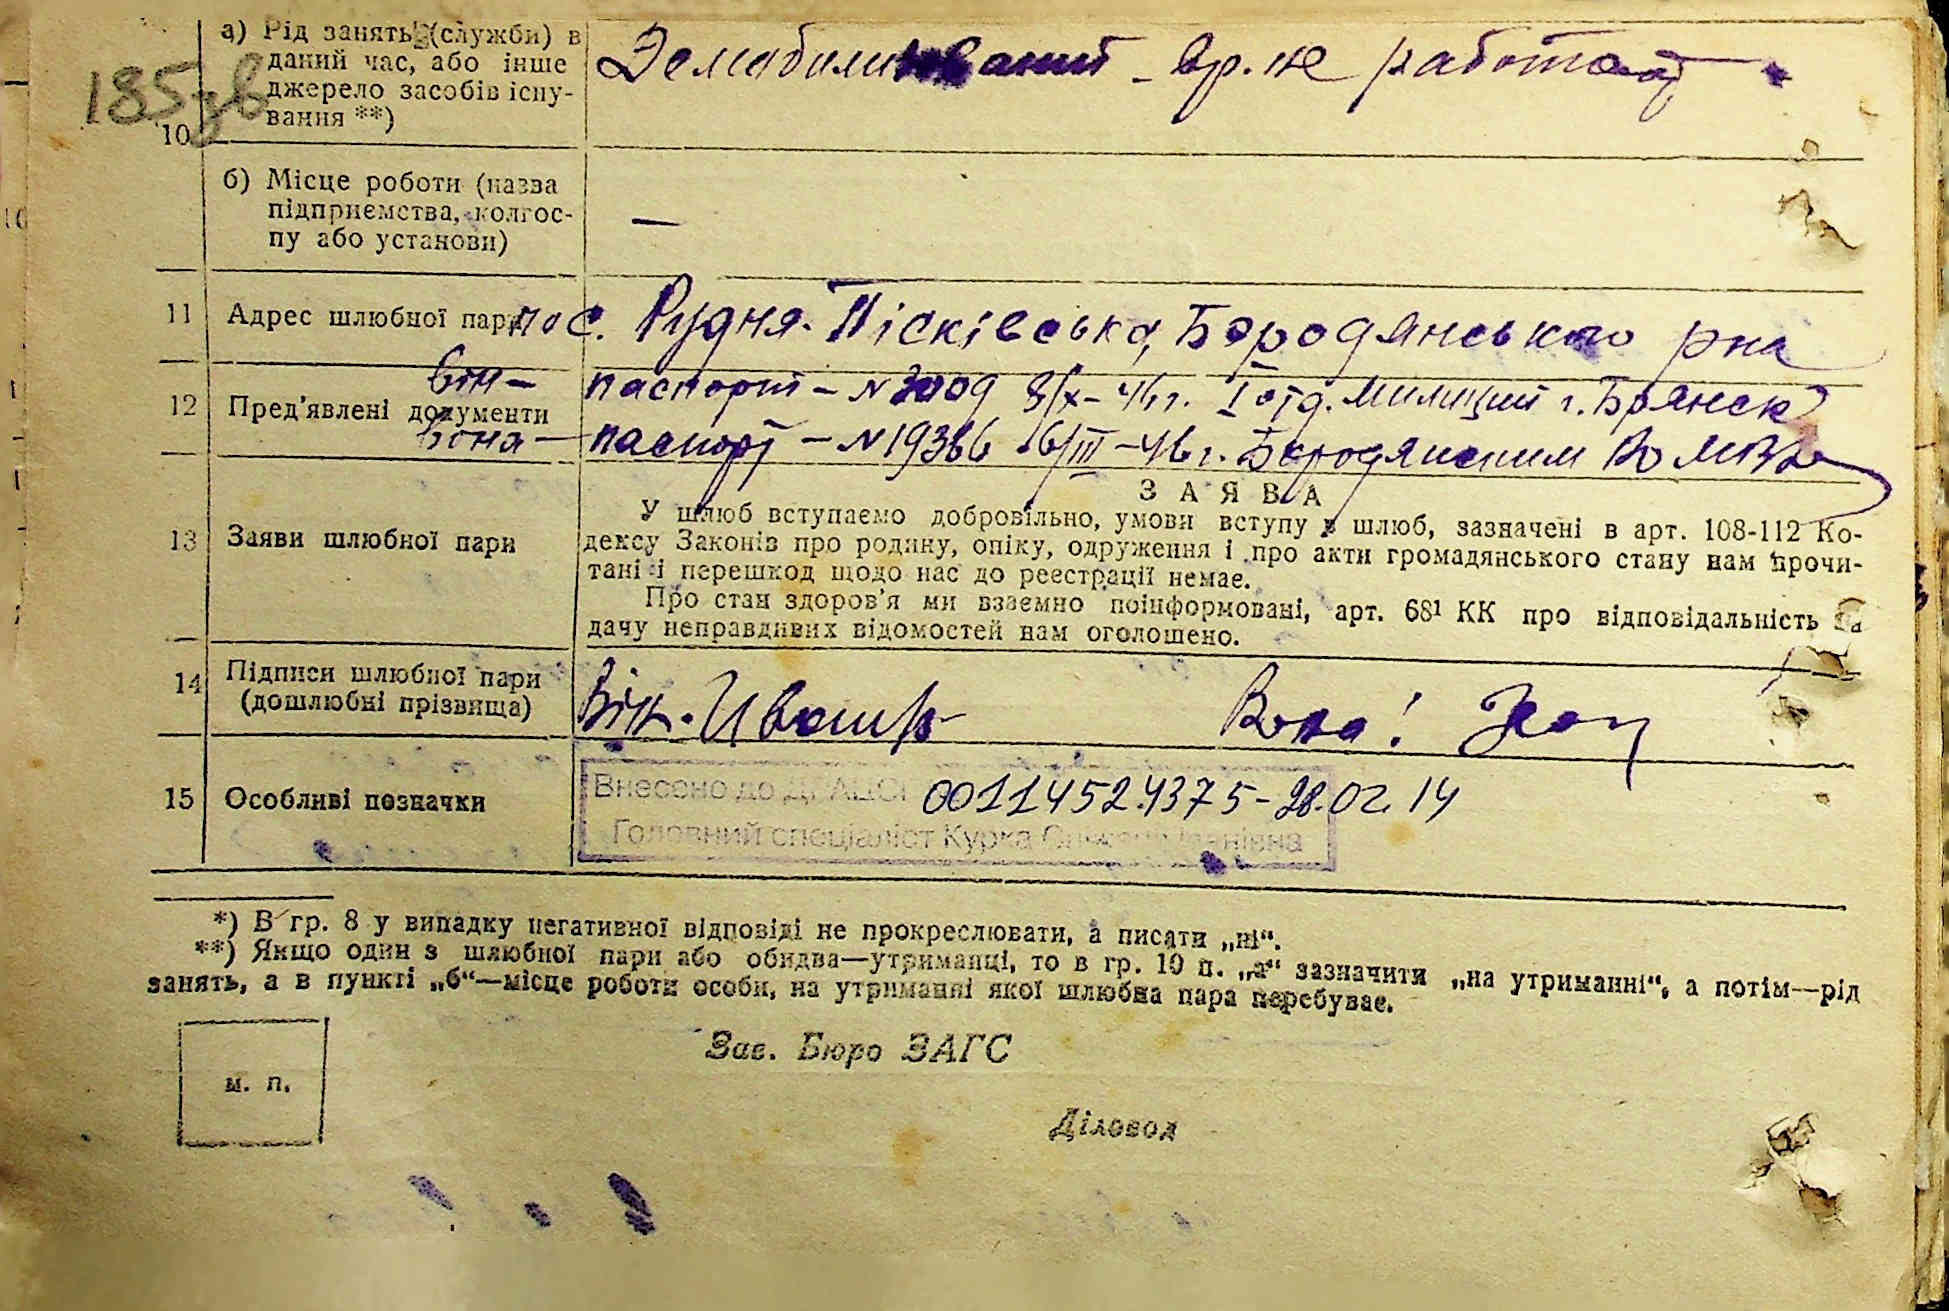 185 зв
а) Рід занять (служби) в
даний час, або інше
джерело засобів існу-
вання **)
10
Демобилизований - вр. не работает
б) Місце роботи (назва
підприємства, колгос-
пу або установи)
—
11 Адрес шлюбної пари пос. Рудня-Пісківська, Бородянського рна
12 Пред'явлені документи
Він - паспорт - № 8/X-46г. I отд. милиции г. Брянск
Вона - паспорт - № 19366 16/III-46г. Бородянским Ро МВД
13 Заяви шлюбної пари
ЗАЯВА
У шлюб вступаємо добровільно, умови вступу в шлюб, зазначені в арт. 108-112 Ко-
дексу Законів про родину, опіку, одруження і про акти громадянського стану нам прочи-
тані і перешкод щодо нас до реєстрації немає.
Про стан здоров'я ми взаємно поінформовані, арт. 68¹ КК про відповідальність за
дачу неправдивих відомостей нам оголошено.
14 Підписи шлюбної пари
(дошлюбні прізвища)
Він. Вона!
15 Особливі позначки
Внесено до ДРАЦСГ 00114524375-28.02.14
Головний спеціаліст Курка Іванівна
*) В гр. 8 у випадку негативної відповіді не прокреслювати, а писати „ні“.
**) Якщо один з шлюбної пари або обидва—утриманці, то в гр. 10 п. „а“ зазначити „на утриманні“, а потім—рід
занять, а в пункті „б“—місце роботи особи, на утриманні якої шлюбна пара перебуває.
м. п.
Зав. Бюро ЗАГС
Діловод